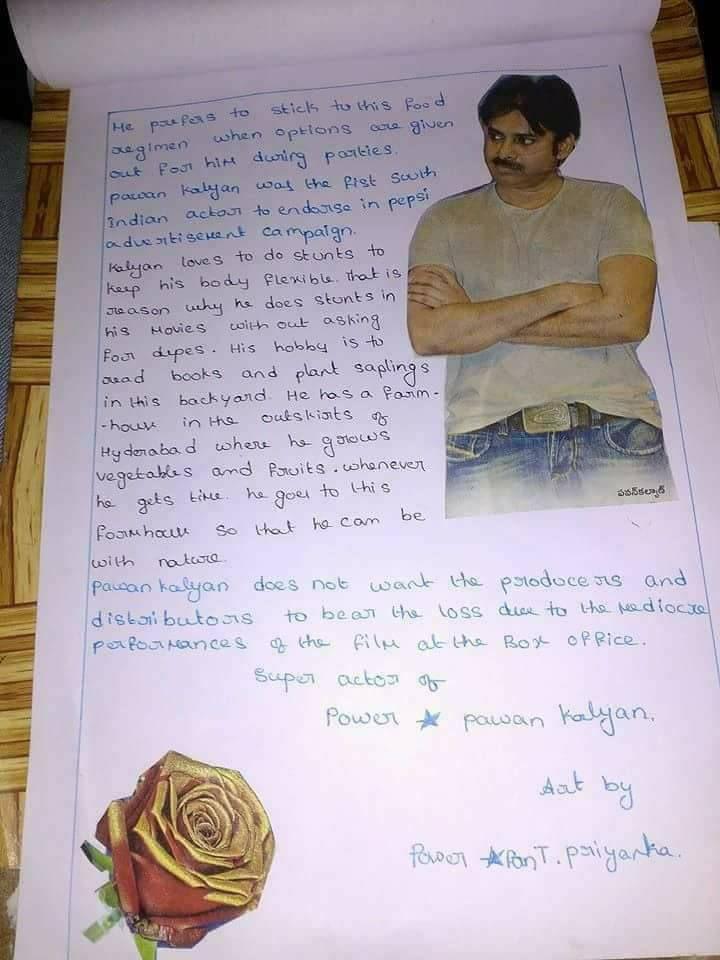 He prefers to stick to this food
regimen when options are given
out for him during parties.
pawan kalyan was the fist south
Indian actor to endorse in pepsi
advertisement campaign.
Kalyan loves to do stunts to
keep his body flexible. that is
reason why he does stunts in
his Movies with out asking
for dupes. His hobby is to
read books and plant saplings
in this backyard. He has a farm-
-house in the outskirts of
Hyderabad where he grows
vegetables and fruits. whenever
he gets time. he goes to this
farmhouse so that he can be
with nature.
పవన్‌కల్యాణ్
pawan kalyan does not want the producers and
distributors to bear the loss due to the mediocre
performances of the film at the Box office.
Super actor of
Power ★ pawan kalyan.
Art by
Power ★ fan T. priyanka.